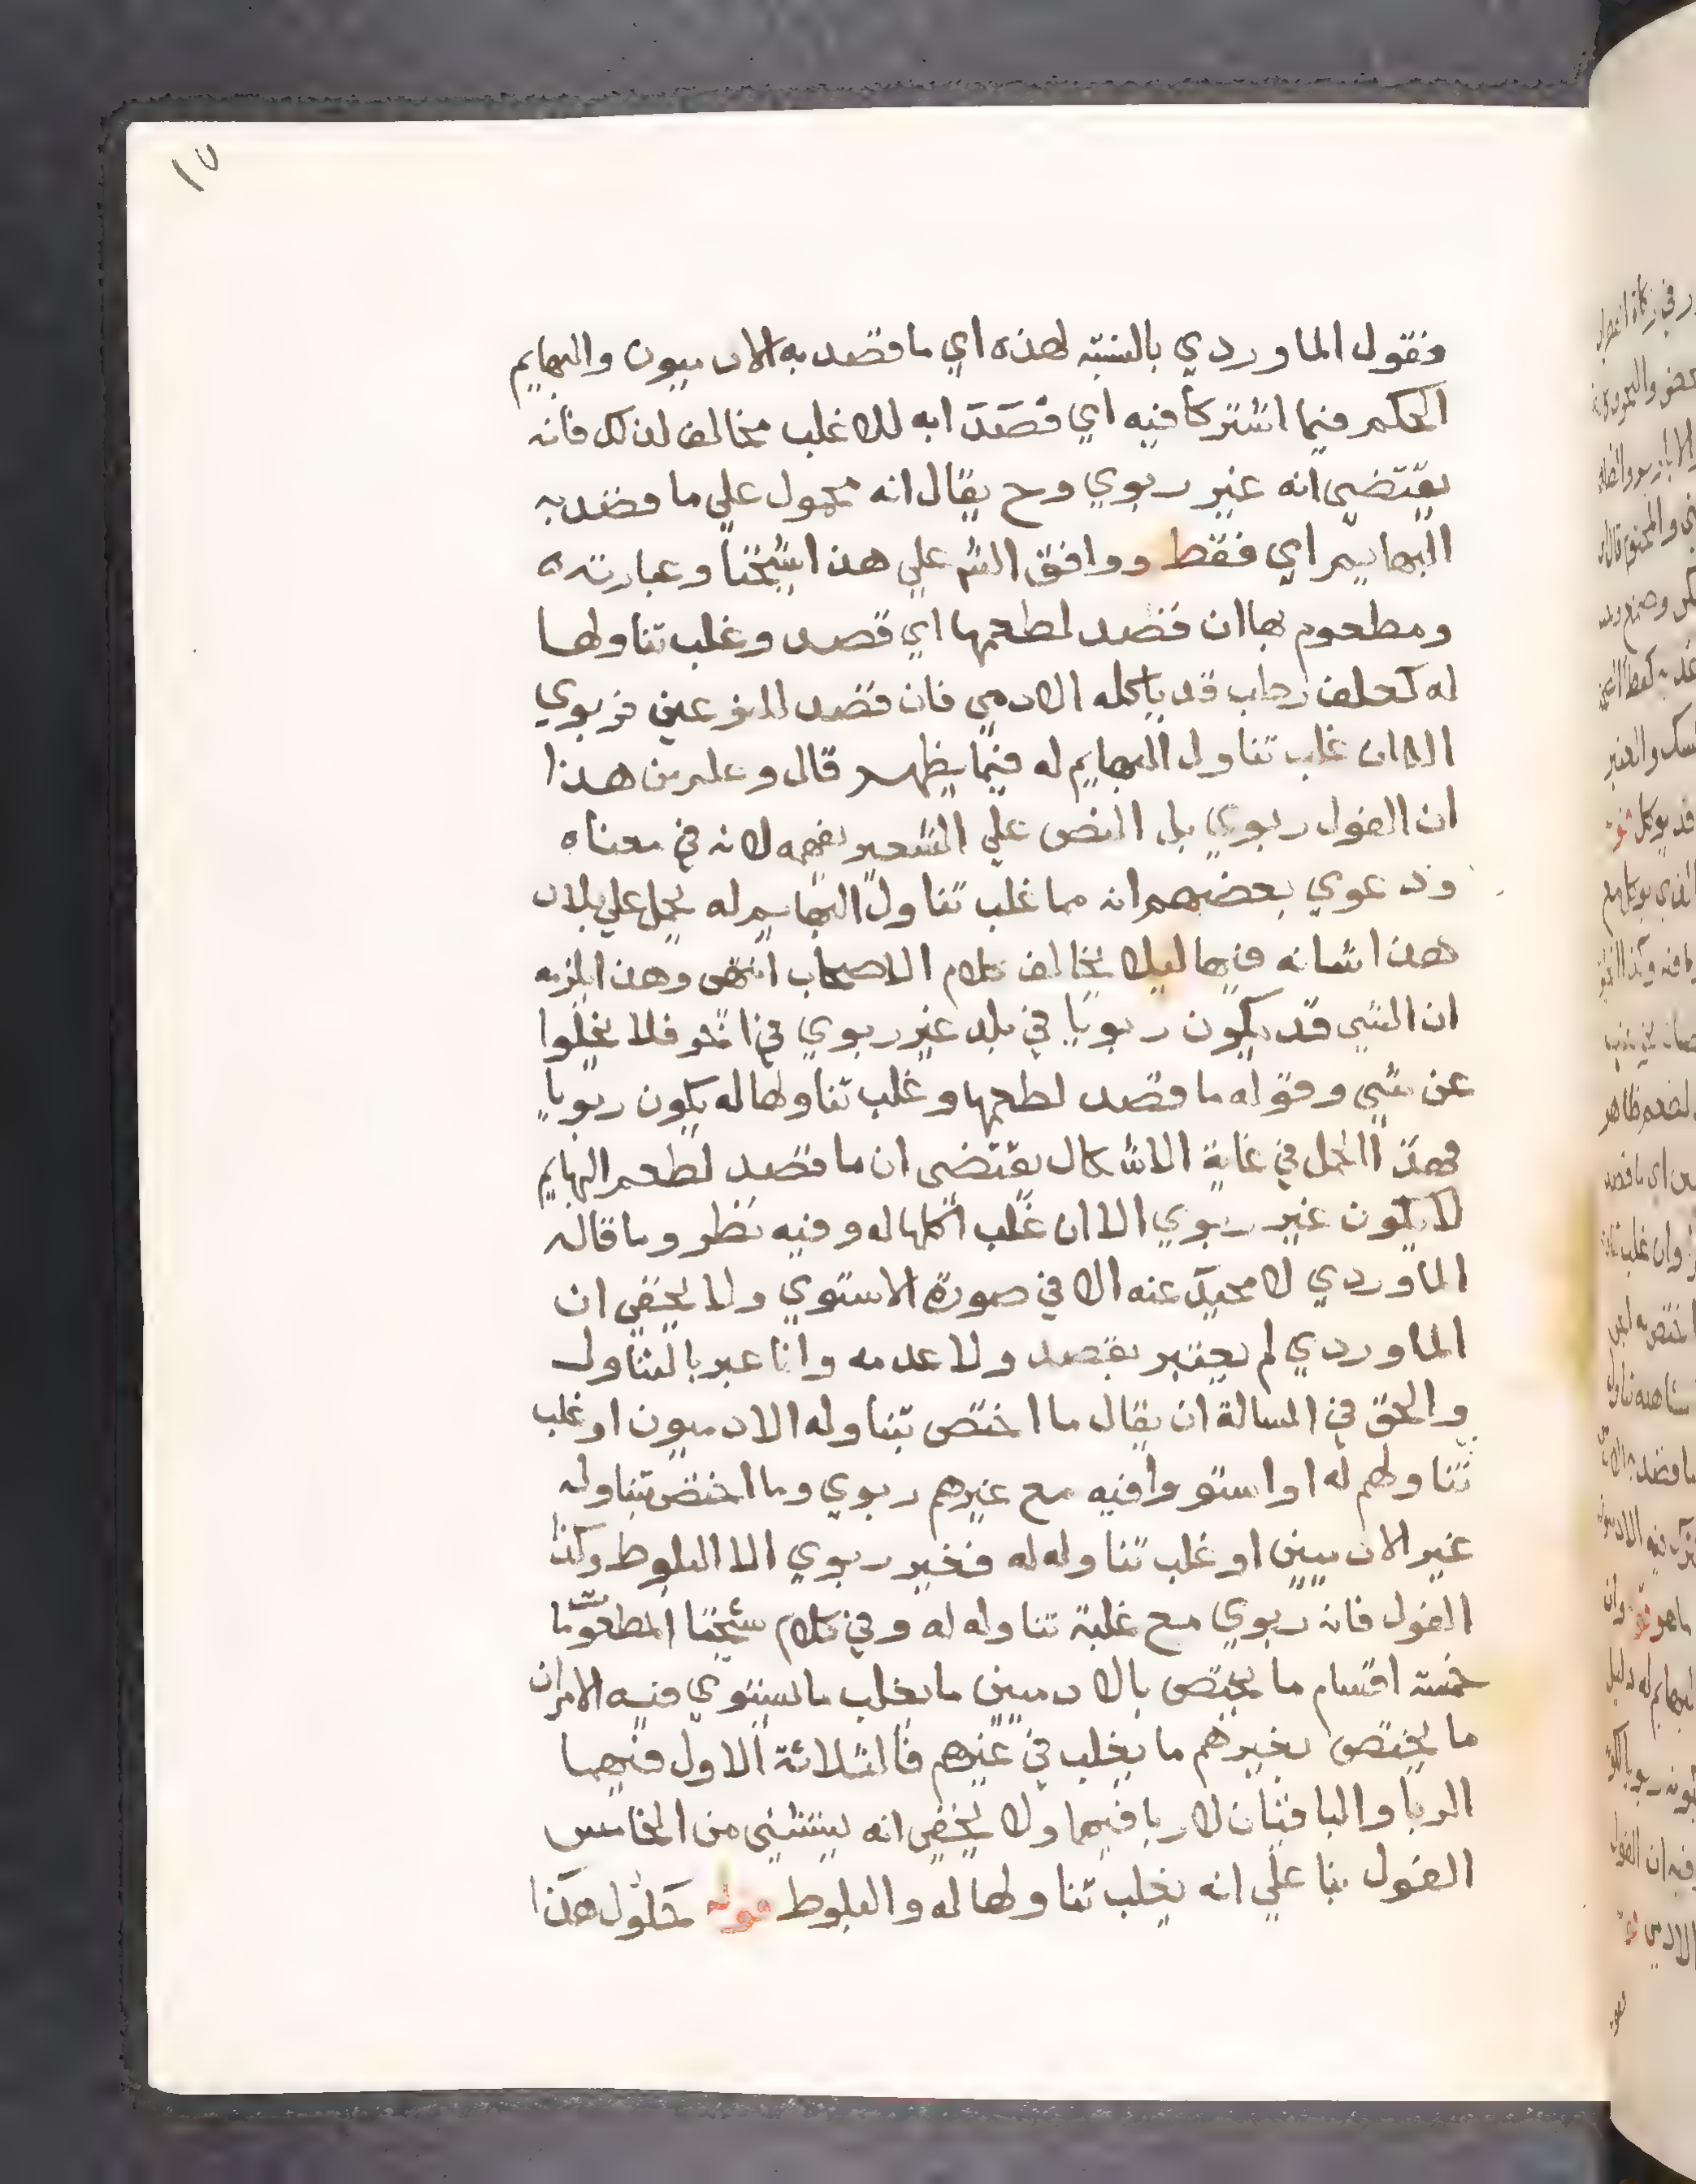 ١٧
فقول الماوردي بالنسبة لهذه اي ما قصد به الادميون والبهايم
الحكم فيما اشتركا فيه اي قصَدَا به للاغلب مخالف لذلك فانه
يقتضي انه غير ربوي وح يقال انه محمول علي ما قصد به
البهايم اي فقط ووافق الشم علي هذا شيخنا وعبارته
ومطعوم بها ان قصد لطعمها اي قصد وغلب تناولها
له كعلف رطب قد ياكله الادمي فان قصد للنوعين فربوي
الا ان غلب تناول البهايم له فيما يظهر قال وعلم من هذا
ان الفول ربوي بل النص علي الشعير يفهمه لانه في معناه
ودعوي بعضهم انه مما غلب تناول البهايم له يحمل علي بلاد
هذا شانه فيها ليلا يخالف كلام الاصحاب انتهى وهذا يلزمه
ان الشي قد يكون ربويا في بلد غير ربوي في اخر فلا يخلوا
عن شي وقوله ما قصد لطعمها وغلب تناولها له يكون ربويا
فهذا الحمل في غاية الاشكال يقتضي ان ما قصد لطعم البهايم
لا يكون غير ربوي الا ان غلب اكلها له وفيه نظر وما قاله
الماوردي لا محيد عنه الا في صورة الاستوي ولا يخفي ان
الماوردي لم يعتبر بقصد ولا عدمه وانما عبر بالتناول
والحق في المسالة ان يقال ما اختص بتناوله الادميون او غلب
تناولهم له او استووا فيه مع غيرهم ربوي وما اختص بتناوله
غير الادميين او غلب تناوله له فغير ربوي الا البلوط وكذا
الفول فانه ربوي مع غلبة تناوله له وفي كلام شيخنا المطعومات
خمسة اقسام ما يختص بالادميين ما يغلب ما يستوي فيه الامران
ما يختص بغيرهم ما يغلب في غيرهم فالثلاثة الاول فيها
الربا والباقيان لا ربا فيهما ولا يخفي انه يستثني من الخامس
الفول بنا علي انه يغلب تناولها له والبلوط قوله كحلول هذا